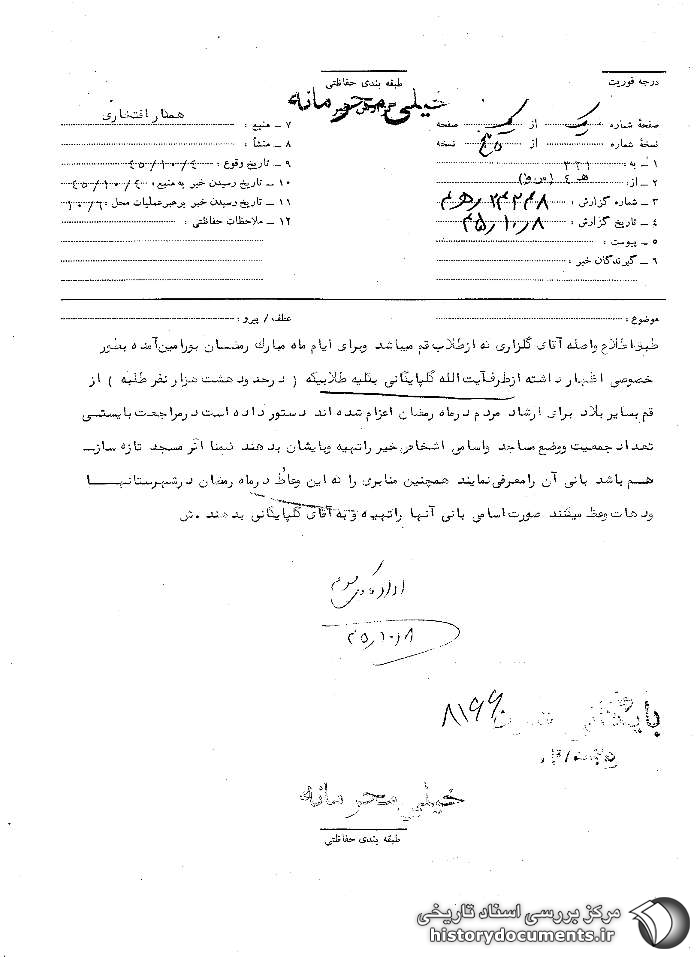 درجه فوریت
طبقه بندی حفاظتی
خیلی محرمانه
صفحهٔ شماره یک از یک صفحه
نسخهٔ شماره از پنج نسخه
۱ ـ به: ۳۲۱
۲ ـ از: ه‍ ٤
۳ ـ شماره گزارش:
۴ ـ تاریخ گزارش: ۴۵/۱۰/۸
۵ ـ پیوست:
۶ ـ گیرندگان خبر:
۷ ـ منبع: همکار افتخاری
۸ ـ منشأ:
۹ ـ تاریخ وقوع: ٤٥/۱۰/٤
۱۰ ـ تاریخ رسیدن خبر به منبع: ٤٥/۱۰/٤
۱۱ ـ تاریخ رسیدن خبر برهبر عملیات محل: ۱۰/٦
۱۲ ـ ملاحظات حفاظتی:
موضوع:
عطف / پیرو:
طبق اطلاع واصله آقای گلزاری که از طلاب قم میباشد وبرای ایام ماه مبارك رمضان بورامین آمده بطور
خصوصی اظهار داشته ازطرف آیت الله گلپایگانی بکلیه طلابیکه ( درحدود هشت هزار نفر طلبه ) از
قم بسایر بلاد برای ارشاد مردم درماه رمضان اعزام شده اند دستور داده است درمراجعت بایستی
تعداد جمعیت ووضع مساجد واسامی اشخاص خیر راتهیه وبایشان بدهند ضمنا اگر مسجد تازه ساز
هم باشد بانی آن رامعرفی نمایند همچنین منابری را که این وعاظ درماه رمضان درشهرستانها
ودهات وعظ میکنند صورت اسامی بانی آنها راتهیه و به آقای گلپایگانی بدهند . ش
اداره کل سوم
۴۵/۱۰/۸
بایگانی ۸۱۶۶
خیلی محرمانه
طبقه بندی حفاظتی
مرکز بررسی اسناد تاریخی
historydocuments.ir